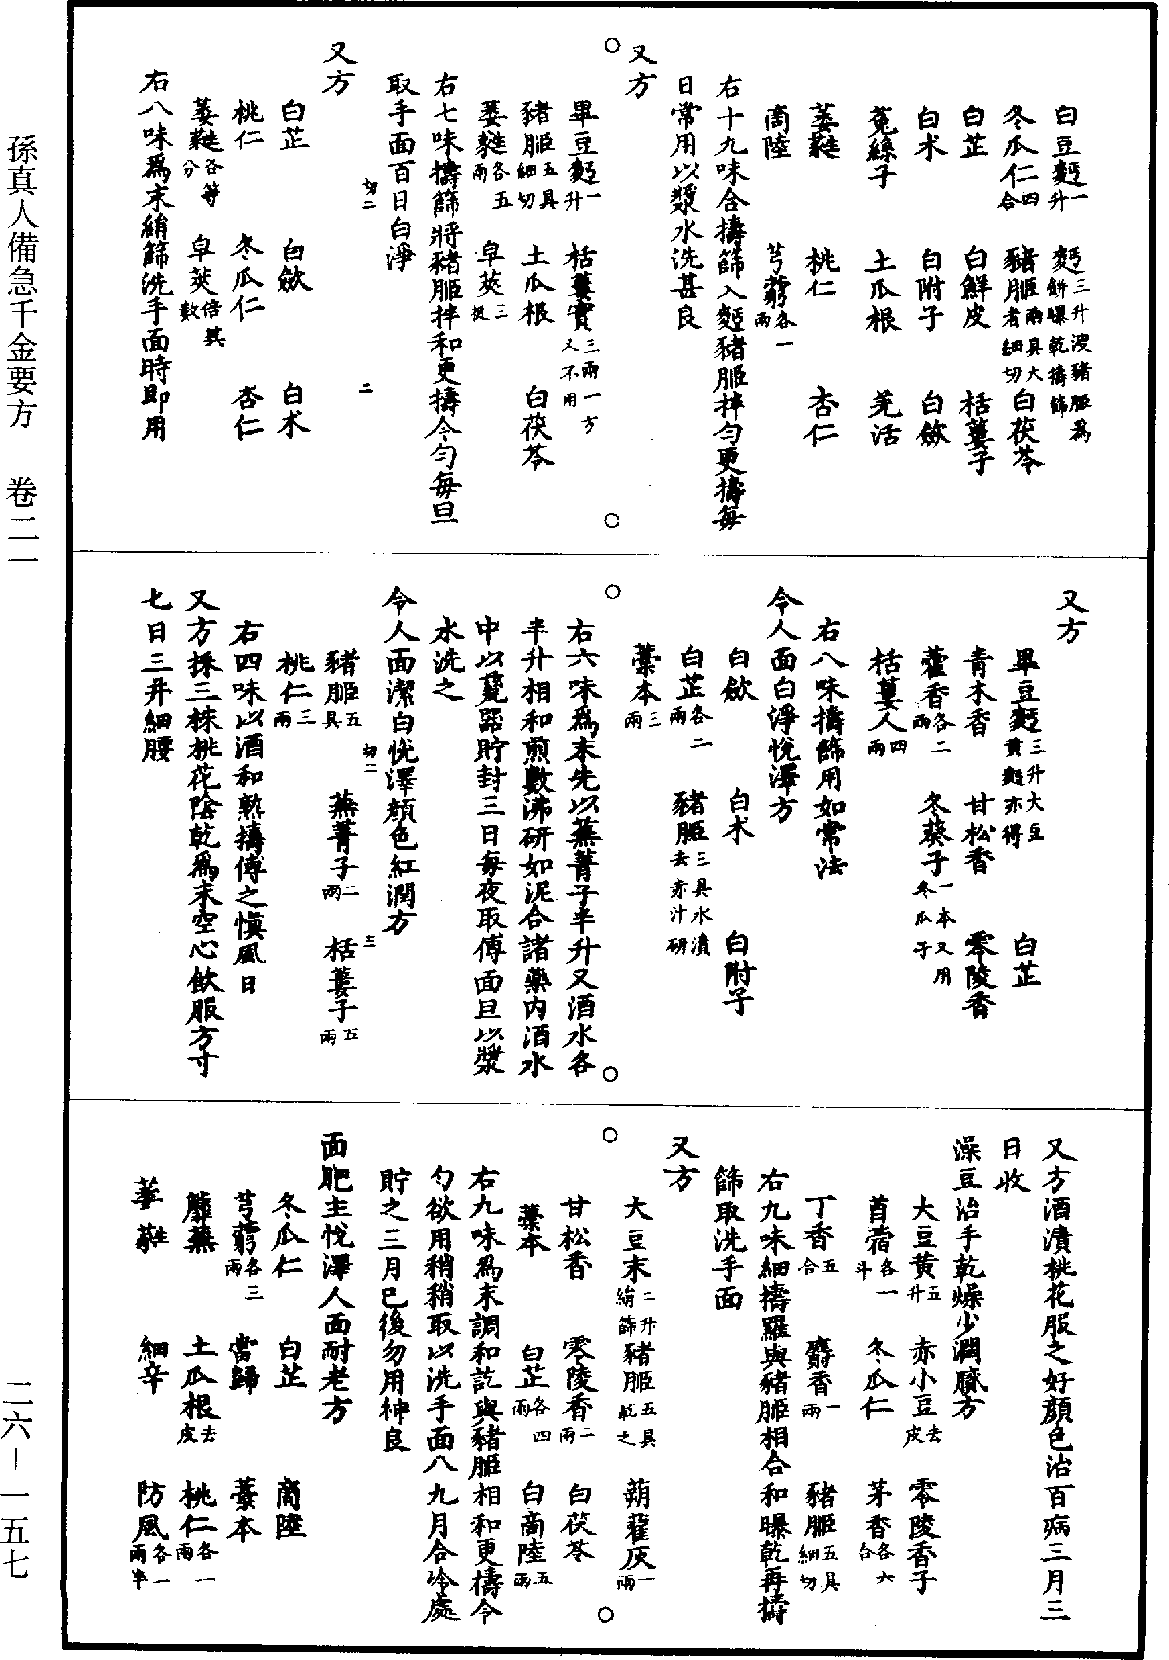 孫真人備急千金要方　卷二一
二六－一五七
白豆麪一升　麪三升溲豬胰爲餅曝乾擣篩
冬瓜仁四合　豬胰兩具大者細切　白茯苓
白芷　白鮮皮　栝蔞子
白术　白附子　白蘞
菟絲子　土瓜根　羌活
萎蕤　桃仁　杏仁
商陸　芎藭各一兩
右十九味合擣篩入麪豬胰拌勻更擣每
日常用以漿水洗甚良
又方
畢豆麪一升　栝蔞實三兩一方又不用
豬胰五具細切　土瓜根　白茯苓
萎蕤各五兩　皁莢三挺
右七味擣篩將豬胰拌和更擣令勻每旦
取手面百日白淨
切二　二
又方
白芷　白蘞　白术
桃仁　冬瓜仁　杏仁
萎蕤各等分　皁莢倍其數
右八味爲末絹篩洗手面時即用
又方
畢豆麪三升大豆黃麪亦得　白芷
青木香　甘松香　零陵香
藿香各二兩　冬葵子一本又用冬瓜子
栝蔞人四兩
右八味擣篩用如常法
令人面白淨悅澤方
白蘞　白术　白附子
白芷各二兩　豬胰三具水漬去赤汁研
藁本三兩
右六味爲末先以蕪菁子半升又酒水各
半升相和煎數沸研如泥合諸藥內酒水
中以甕器貯封三日每夜取傅面旦以漿
水洗之
令人面潔白悅澤顔色紅潤方
切二　主
豬胰五具　蕪菁子二兩　栝蔞子五兩
桃仁三兩
右四味以酒和熟擣傅之愼風日
又方採三株桃花陰乾爲末空心飲服方寸
七日三并細腰
又方酒漬桃花服之好顔色治百病三月三
日收
澡豆治手乾燥少潤膩方
大豆黃五升　赤小豆去皮　零陵香子
苜蓿各一斗　冬瓜仁　茅香各六合
丁香五合　麝香一兩　豬胰五具細切
右九味細擣羅與豬胰相合和曝乾再擣
篩取洗手面
又方
大豆末二升絹篩　豬胰五具乾之　蒴藋灰一兩
甘松香　零陵香二兩　白茯苓
藁本　白芷各四兩　白商陸五兩
右九味爲末調和訖與豬胰相和更擣令
勻欲用稍稍取以洗手面八九月合冷處
貯之三月已後勿用神良
面肥主悅澤人面耐老方
冬瓜仁　白芷　商陸
芎藭各三兩　當歸　藁本
蘼蕪　土瓜根去皮　桃仁各一兩
萎蕤　細辛　防風各一兩半